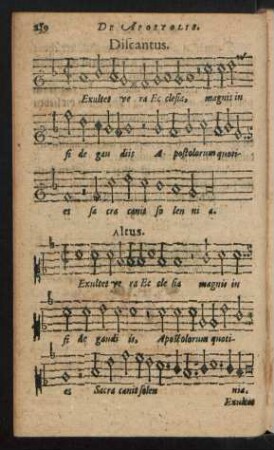 250 DE APOSTOLIS.
Discantus.
Exultet ve ra Ec clesia, magnis in
si de gau diis A- postolorum quoti-
es sa cra canit so len ni a.
Altus.
Exultet ve ra Ec cle sia magnis in
si de gaudi is, Apostolorum quoti-
es Sacra canit solen nia.
Exultet